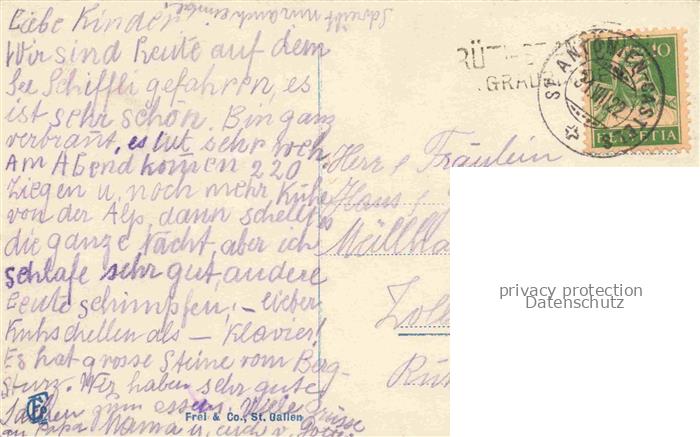 Schreibt mir auch einmal!
Liebe Kinder!
Wir sind heute auf dem
See Schiffli gefahren, es
ist sehr schön. Bin ganz
verbrannt, es tut sehr weh.
Am Abend kommen 220
Ziegen u. noch mehr Kühe
von der Alp, dann schellt es
die ganze Nacht aber ich
schlafe sehr gut, andere
Leute schimpfen. – Lieber
Kuhschellen als – Klavier!
Es hat grosse Steine vom Berg-
Sturz. Wir haben sehr gute
Sachen zum essen. Viele Grüsse
an Papa Mama u. auch v. Gotte
ST. ANTÖNIEN
31.VII.22
10
HELVETIA
Herr & Fräulein
Hans &
Rüt
Frei & Co., St. Gallen
privacy protection
Datenschutz